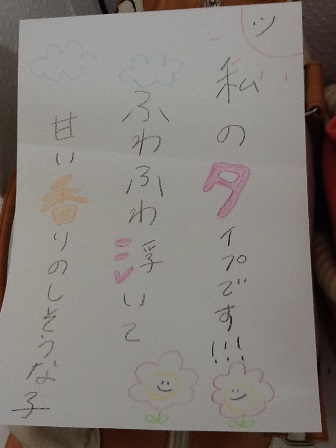 私のタイプです!!!
ふわふわ浮いて
甘い香りのしそうな子